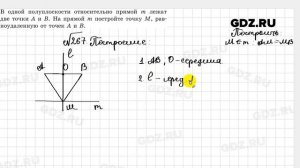 В одной полуплоскости относительно прямой m лежат
две точки A и B. На прямой m постройте точку M, рав-
ноудаленную от точек A и B.
WWW.ZDRF.RU
Построить
M ∈ m : AM = MB
№287 Построение
l
A O B
M m
1 AB, O-середина
2 l - сред